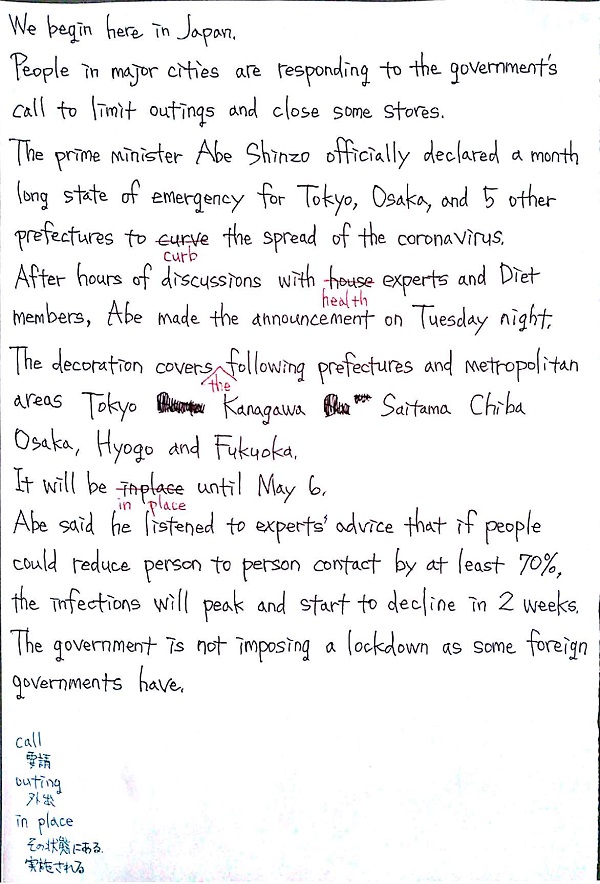 We begin here in Japan.
People in major cities are responding to the government's
call to limit outings and close some stores.
The prime minister Abe Shinzo officially declared a month
long state of emergency for Tokyo, Osaka, and 5 other
prefectures to curve the spread of the coronavirus.
curb
After hours of discussions with house experts and Diet
health
members, Abe made the announcement on Tuesday night.
The decoration covers following prefectures and metropolitan
the
areas Tokyo Kanagawa Saitama Chiba
Osaka, Hyogo and Fukuoka.
It will be inplace until May 6.
in place
Abe said he listened to experts' advice that if people
could reduce person to person contact by at least 70%,
the infections will peak and start to decline in 2 weeks.
The government is not imposing a lockdown as some foreign
governments have.
call
要請
outing
外出
in place
その状態にある
実施される